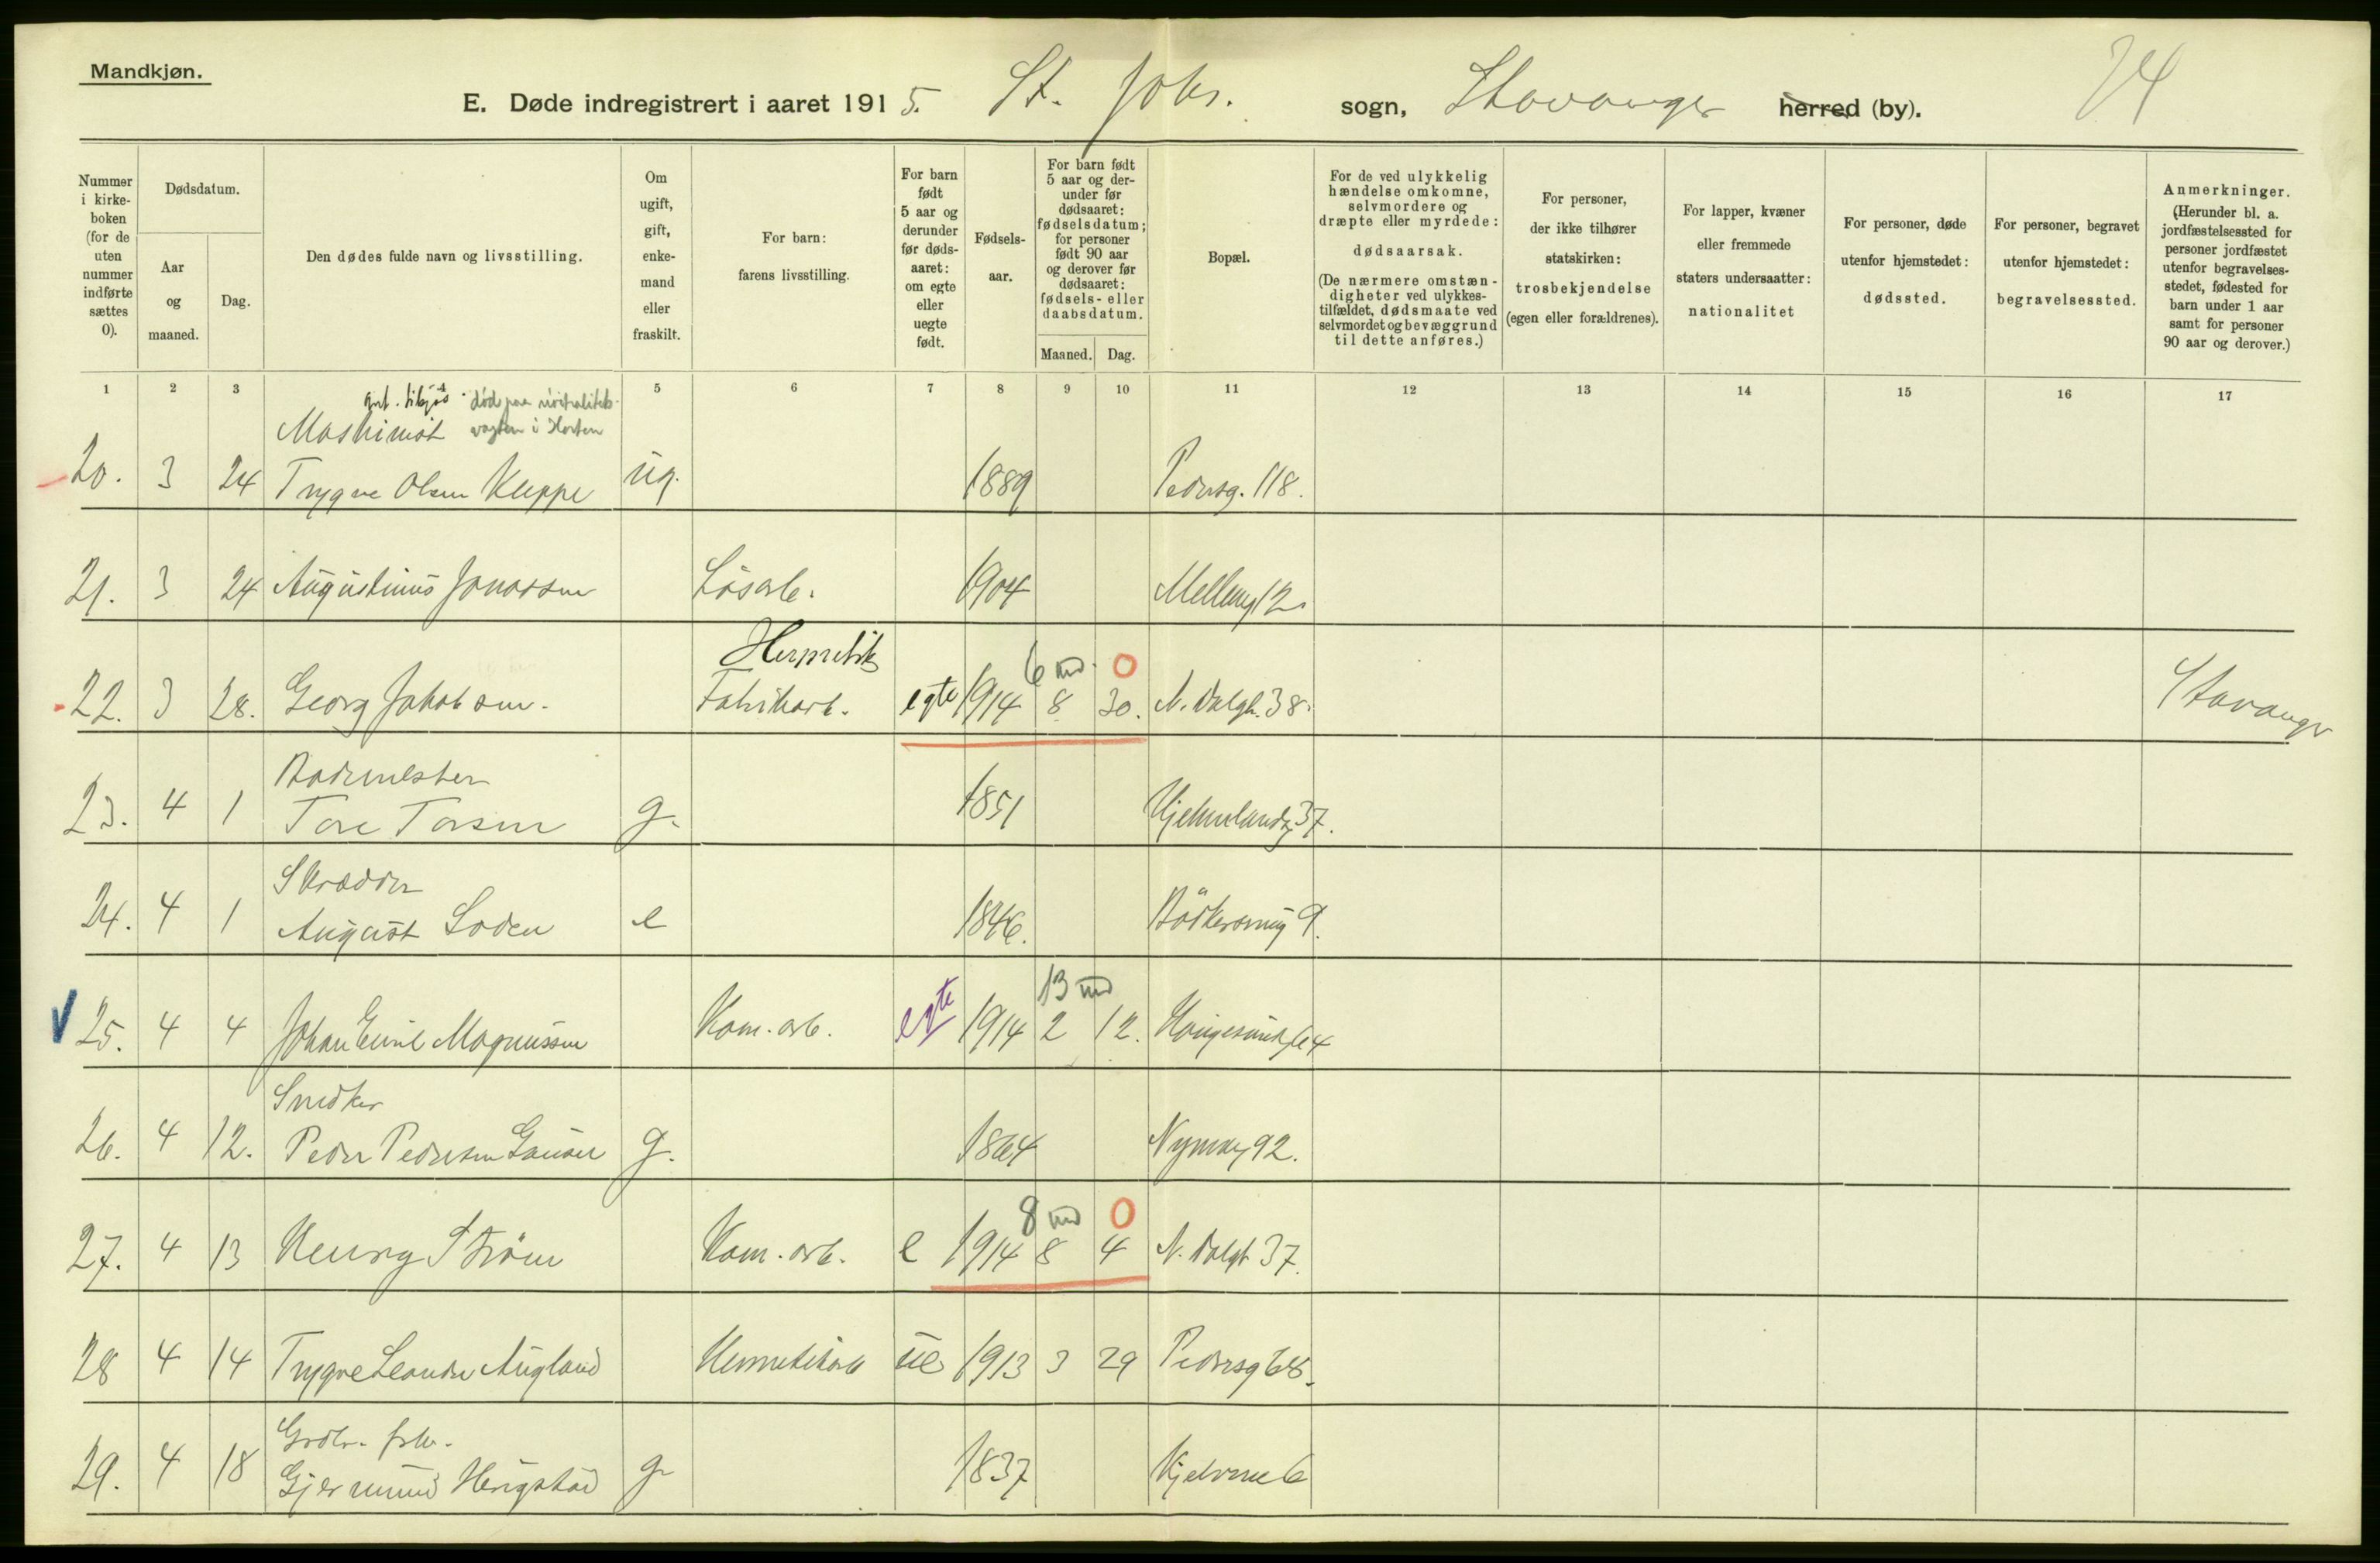 Mandkjøn.
E. Døde indregistrert i aaret 1915. St. Johs. sogn, Stavanger herred (by).
24
Nummer i kirkeboken (for de uten nummer indførte sættes 0).
Dødsdatum.
Aar og maaned.
Dag.
Den dødes fulde navn og livsstilling.
Om ugift, gift, enkemand eller fraskilt.
For barn: farens livsstilling.
For barn født 5 aar og derunder før dødsaaret: om egte eller uegte født.
Fødselsaar.
For barn født 5 aar og derunder før dødsaaret: fødselsdatum; for personer født 90 aar og derover før dødsaaret: fødsels- eller daabsdatum.
Maaned.
Dag.
Bopæl.
For de ved ulykkelig hændelse omkomne, selvmordere og dræpte eller myrdede: dødsaarsak. (De nærmere omstændigheter ved ulykkestilfældet, dødsmaate ved selvmordet og bevæggrund til dette anføres.)
For personer, der ikke tilhører statskirken: trosbekjendelse (egen eller forældrenes).
For lapper, kvæner eller fremmede staters undersaatter: nationalitet
For personer, døde utenfor hjemstedet: dødssted.
For personer, begravet utenfor hjemstedet: begravelsessted.
Anmerkninger. (Herunder bl. a. jordfæstelsessted for personer jordfæstet utenfor begravelsesstedet, fødested for barn under 1 aar samt for personer 90 aar og derover.)
1 2 3 5 6 7 8 9 10 11 12 13 14 15 16 17
død paa nøitralitets-
Maskinist vagten i Horten
20. 3 24 Trygve Olsen Kleppe ug. 1889 Pedersg. 118.
21. 3 24 Augustinus Jonassen Løsarb. 1904 Mellemg 12.
Hermetik 6 md. 0
22. 3 28. Georg Jakobsen. Fabrikarb. egte 1914 8 30. N. Dalgt. 38. Stavanger
Bademester
23. 4 1 Tore Torsen g. 1851 Hjelmelandsg 37.
Skrædder
24. 4 1 August Soden e 1846. 9.
13 md
25. 4 4 Johan Emil Magnussen Kom. arb. egte 1914 2 12. Haugesundsg 64
Snedker
26. 4 12. Peder Pedersen Gausel g. 1864 Nymansv 92.
8 md 0
27. 4 13 Henry Strøm Kom. arb. e 1914 8 4 N. Dalgt 37.
28 4 14 Trygve Leander Augland Hermetikarb ue 1913 3 29 Pedersg 68.
Grdbr. fhv.
29. 4 18 Gjermund Heigstad g. 1837 6